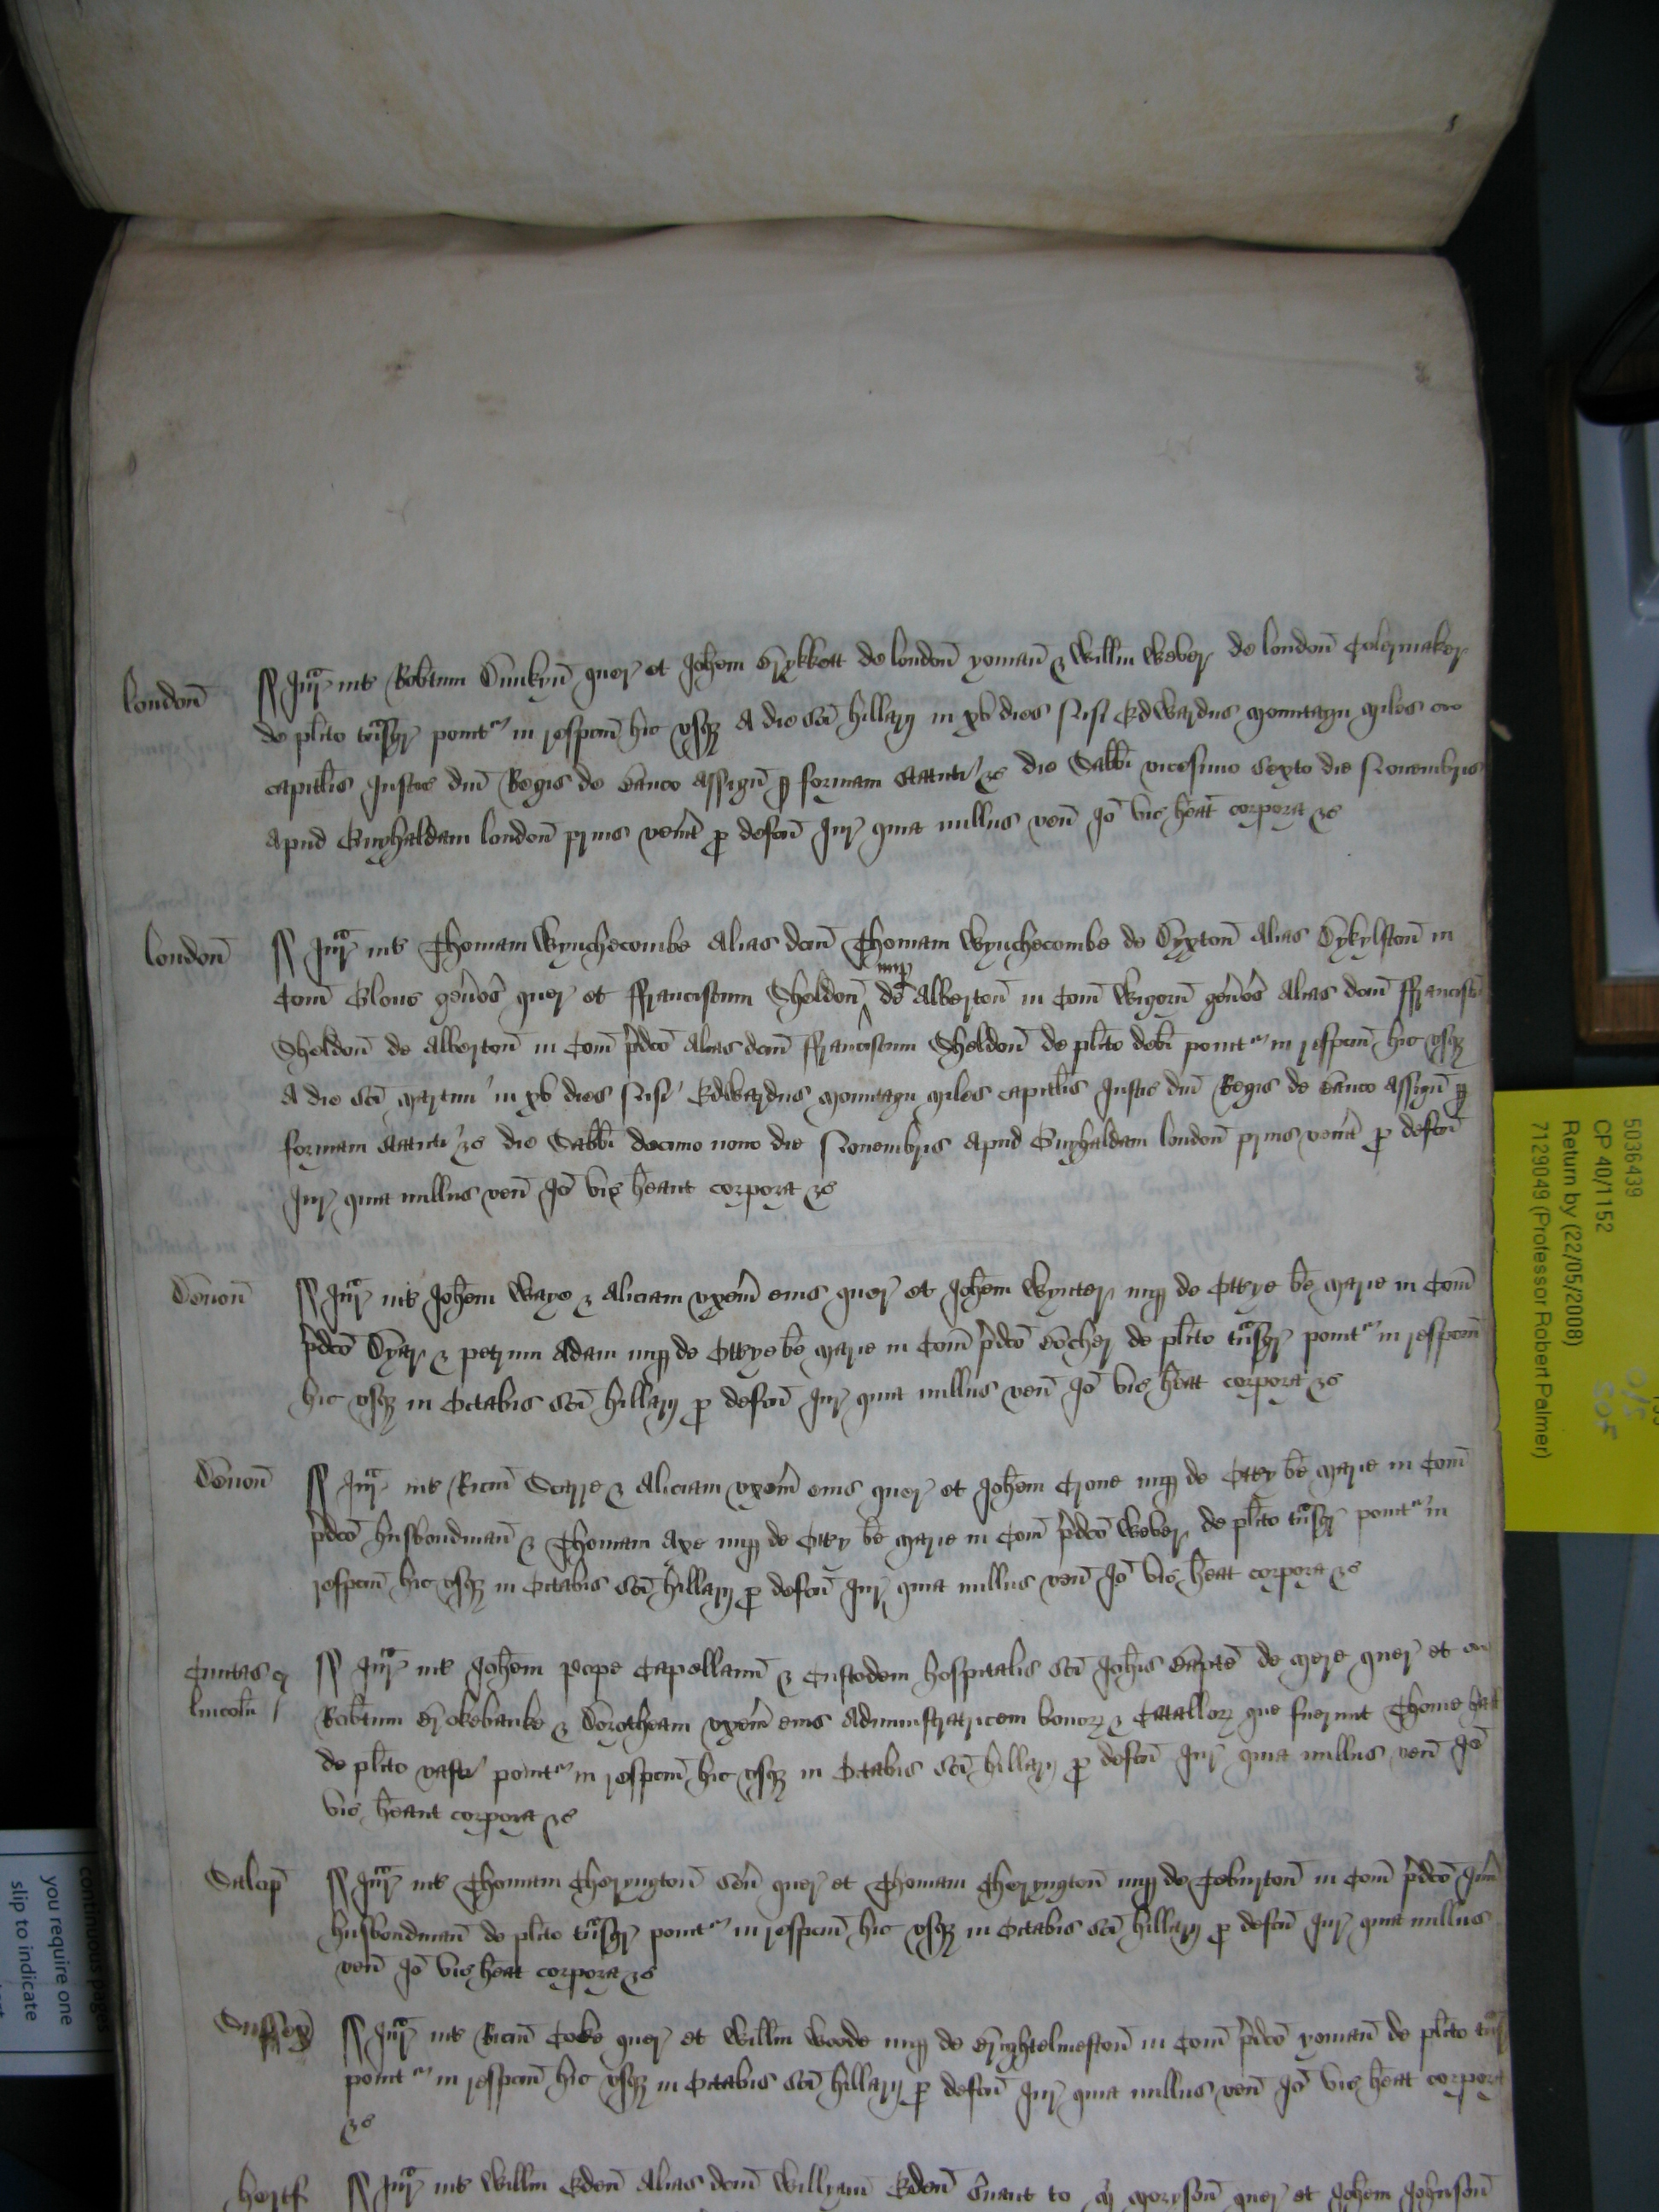 london̄ Jur̄ int̄ Rob̄tum Dunkyn̄ quer̄ et Joh̄em Brykkett de london̄ yoman̄ & Will̄m Weber de london̄ Colermaker
de pl̄ito tn̄sgr̄ ponitr in respcm̄ hic usq̄ A die Sc̄i hillarij in xv dies Nisi Edwardus Mountagu Miles
capital̄is Justic̄ dn̄i Regis de Banco assign̄ p̱ formam Statuti &c die Sab̄bi vicesimo sexto die Novembris
apud Guyhaldam london̄ prius ven̄it p̱ defc̄u Jur̄ quia nullus ven̄ Jō vic̄ h̄eat corpora &c
london̄ Jur̄ int̄ Thomam Wynchecombe Alias dc̄m Thomam Wynchecombe de Dyxton̄ Alias Dykylston̄ in
Com̄ Glouc̄ gen̄os̄ quer̄ et ffranciscum Sheldon̄ nup̱ de Alberton̄ in Com̄ Wigorn̄ gen̄os̄ Alias dc̄m ffrancisc̄u
Sheldon̄ de Alberton̄ in Com̄ p̄dc̄o Alias dc̄m ffranciscum Sheldon̄ de pl̄ito deb̄i ponitr in respcm̄ hic usq̄
A die Sc̄i Martini in xv dies Nisi Edwardus Mountagu Miles capital̄is Justic̄ dn̄i Regis de Banco assign̄ p̱
formam Statuti &c die Sab̄bi decimo nono die Novembris apud Guyhaldam london̄ prius ven̄it p̱ defc̄u
Jur̄ quia nullus ven̄ Jō vic̄ h̄eant corpora &c
Devon̄ Jur̄ int̄ Joh̄em Waye & Aliciam ux̄em eius quer̄ et Joh̄em Wynter nup̱ de Ottrye b̄e Marie in Com̄
p̄dc̄o Dyar & Petrum Adam nup̱ de Otteye b̄e Marie in Com̄ p̄dc̄o Bocher de pl̄ito tn̄sgr̄ ponitr in respcm̄
hic usq̄ in Octabis Sc̄i hillarij p̱ defc̄u Jur̄ quia nullus ven̄ Jō vic̄ h̄eat corpora &c
Devon̄ Jur̄ int̄ Ric̄m & Aliciam ux̄em eius quer̄ et Joh̄em nup̱ de Ottey b̄e Marie in Com̄
p̄dc̄o husbondman̄ & Thomam Axe nup̱ de Ottey b̄e Marie in Com̄ p̄dc̄o Weber de pl̄ito tn̄sgr̄ ponitr in
respcm̄ hic usq̄ in Octabis Sc̄i hillarij p̱ defc̄u Jur̄ quia nullus ven̄ Jō vic̄ h̄eat corpora &c
Civitas lincoln̄ Jur̄ int̄ Joh̄em Pope Capellanū & Custodem hospitalis Sc̄i Joh̄is Bapt̄e de Mere quer̄ et
Rob̄tum Brokebanke & Dorotheam ux̄em eius Administratricem bonorꝝ & Catallorꝝ que fuerunt Thome
de pl̄ito vasti ponitr in respcm̄ hic usq̄ in Octabis Sc̄i hillarij p̱ defc̄u Jur̄ quia nullus ven̄ Jō
vic̄ h̄eant corpora &c
Salop̄ Jur̄ int̄ Thomam Cheryngton̄ Sen̄ quer̄ et Thomam Cheryngton̄ nup̱ de Teburton̄ in Com̄ p̄dc̄o Jun̄
husbondman̄ de pl̄ito tn̄sgr̄ ponitr in respcm̄ hic usq̄ in Octabis Sc̄i hillarij p̱ defc̄u Jur̄ quia nullus
ven̄ Jō vic̄ h̄eat corpora &c
Sussex Jur̄ int̄ Ric̄m Coke quer̄ et Will̄m Woode nup̱ de Brighthelmeston̄ in Com̄ p̄dc̄o yoman̄ de pl̄ito
ponitr in respcm̄ hic usq̄ in Octabis Sc̄i hillarij p̱ defc̄u Jur̄ quia nullus ven̄ Jō vic̄ h̄eat corpora
&c
hertf Jur̄ int̄ Will̄m Eden̄ Alias dc̄m Willyam Eden̄ s̄uant to Moryson̄ quer̄ et Joh̄em Johnson̄
5036439
CP 40/1152
Return by (22/05/2008)
7129049 (Professor Robert Palmer)
continuous pages
you require one
slip to indicate